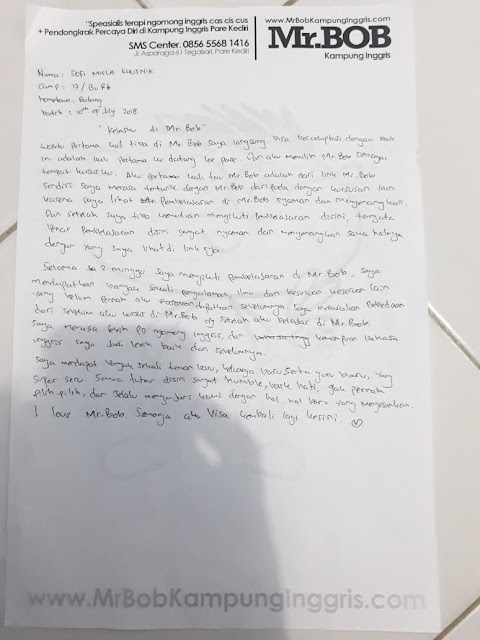 "Speasialis terapi ngomong inggris cas cis cus
+ Pendongkrak Percaya Diri di Kampung Inggris Pare Kediri
SMS Center. 0856 5568 1416
Jl. Asparaga 61 Tegalsari, Pare Kediri
www.MrBobKampungInggris.com
Mr.BOB
Kampung Inggris
Nama : Sofi Miela
Camp : 17 / Bu
hometown : Batang
batch : 10th of July 2018
"Kelasku di Mr. Bob"
Waktu Pertama kali tiba di Mr. Bob saya langsung bisa beradaptasi dengan baik
ini adalah kali pertama ku datang ke pare. Dan aku memilih Mr. Bob sebagai
tempat kursusku. Aku pertama kali tau Mr. Bob adalah dari link Mr. Bob
sendiri. Saya merasa tertarik dengan Mr. Bob dari pada dengan kursusan lain
karena saya lihat Pembelajaran di Mr. Bob nyaman dan menyenangkan.
Dan setelah saya tiba kemudian mengikuti pembelajaran disini, ternyata
benar Pembelajaran disini sangat nyaman dan menyenangkan sama halnya
dengan yang saya lihat di link nya.
Selama 2 minggu saya mengikuti Pembelajaran di Mr. Bob, saya
mendapatkan banyak sekali pengalaman, ilmu dan kesenian kesenian lain
yang belum pernah aku dapatkan sebelumnya. Saya merasakan Perbedaan
dari sebelum aku kursus di Mr. Bob dg setelah aku belajar di Mr. Bob.
Saya merasa lebih PD ngomong inggris, dan kemampuan bahasa
inggris saya jadi lebih baik dari sebelumnya.
Saya mendapat banyak sekali teman baru, keluarga baru, serta guru baru, yang
super seru. Semua tutor disini sangat humble, baik hati, gak pernah
pilih-pilih, dan selalu mengajari kami dengan hal-hal baru yang mengesankan.
I love Mr. Bob. Semoga aku bisa kembali lagi kesini. ♡
www.MrBobKampungInggris.com